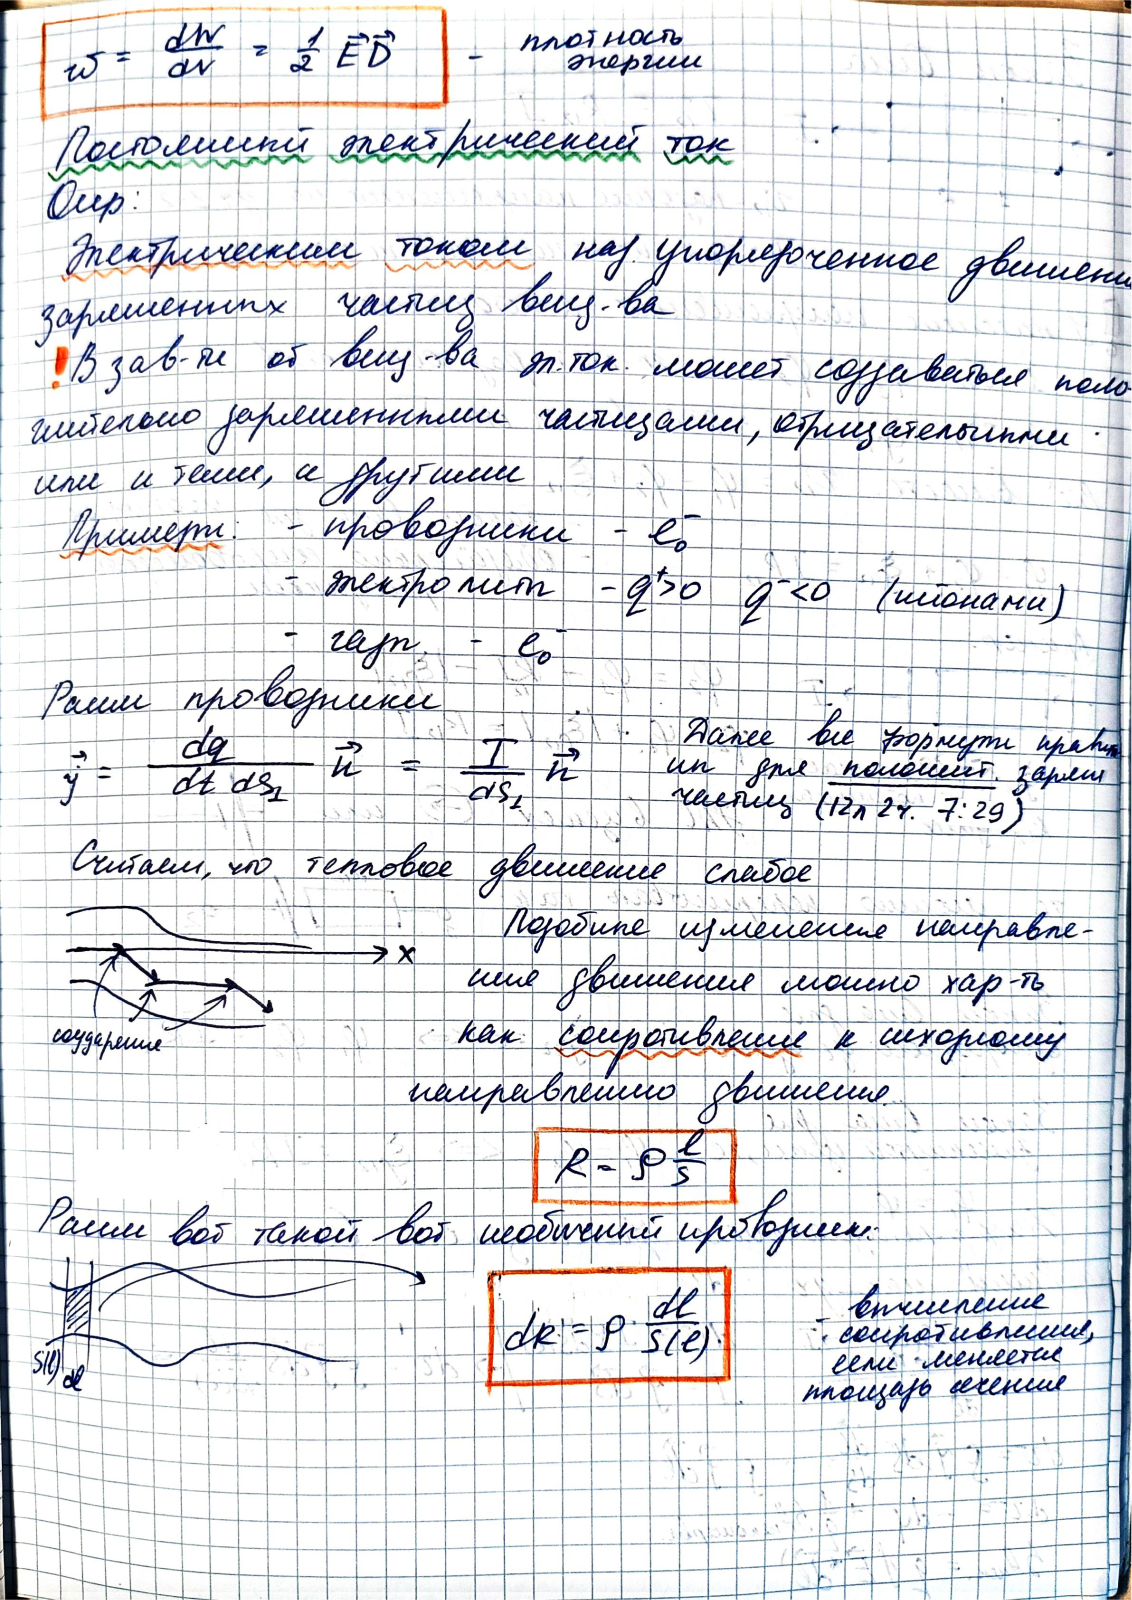 w = dW/dV = 1/2 E⃗D⃗ - плотность энергии
Постоянный электрический ток
Опр:
Электрическим током наз. упорядоченное движение
заряженных частиц вещ-ва
! В зав-ти от вещ-ва эл. ток. может создаваться поло-
жительно заряженными частицами, отрицательными
или и теми, и другими
Примеры: - проводники - e₀⁻
- электролиты - q⁺>0 q⁻<0 (ионами)
- газы - e₀⁻
Рассм проводники
j⃗ = dq/(dt dS⊥) n⃗ = I/dS⊥ n⃗
Далее все формулы
ип для положит. заряж
частиц (12л 2ч. 7:29)
Считаем, что тепловое движение слабое
x
соударение
Подобные изменения направле-
ния движения можно хар-ть
как сопротивление к исходному
направлению движения
R = ρ l/S
Рассм вот такой вот необычный проводник:
S(l) dl
dR = ρ · dl/S(l)
вычисление
сопротивления,
если меняется
площадь сечения